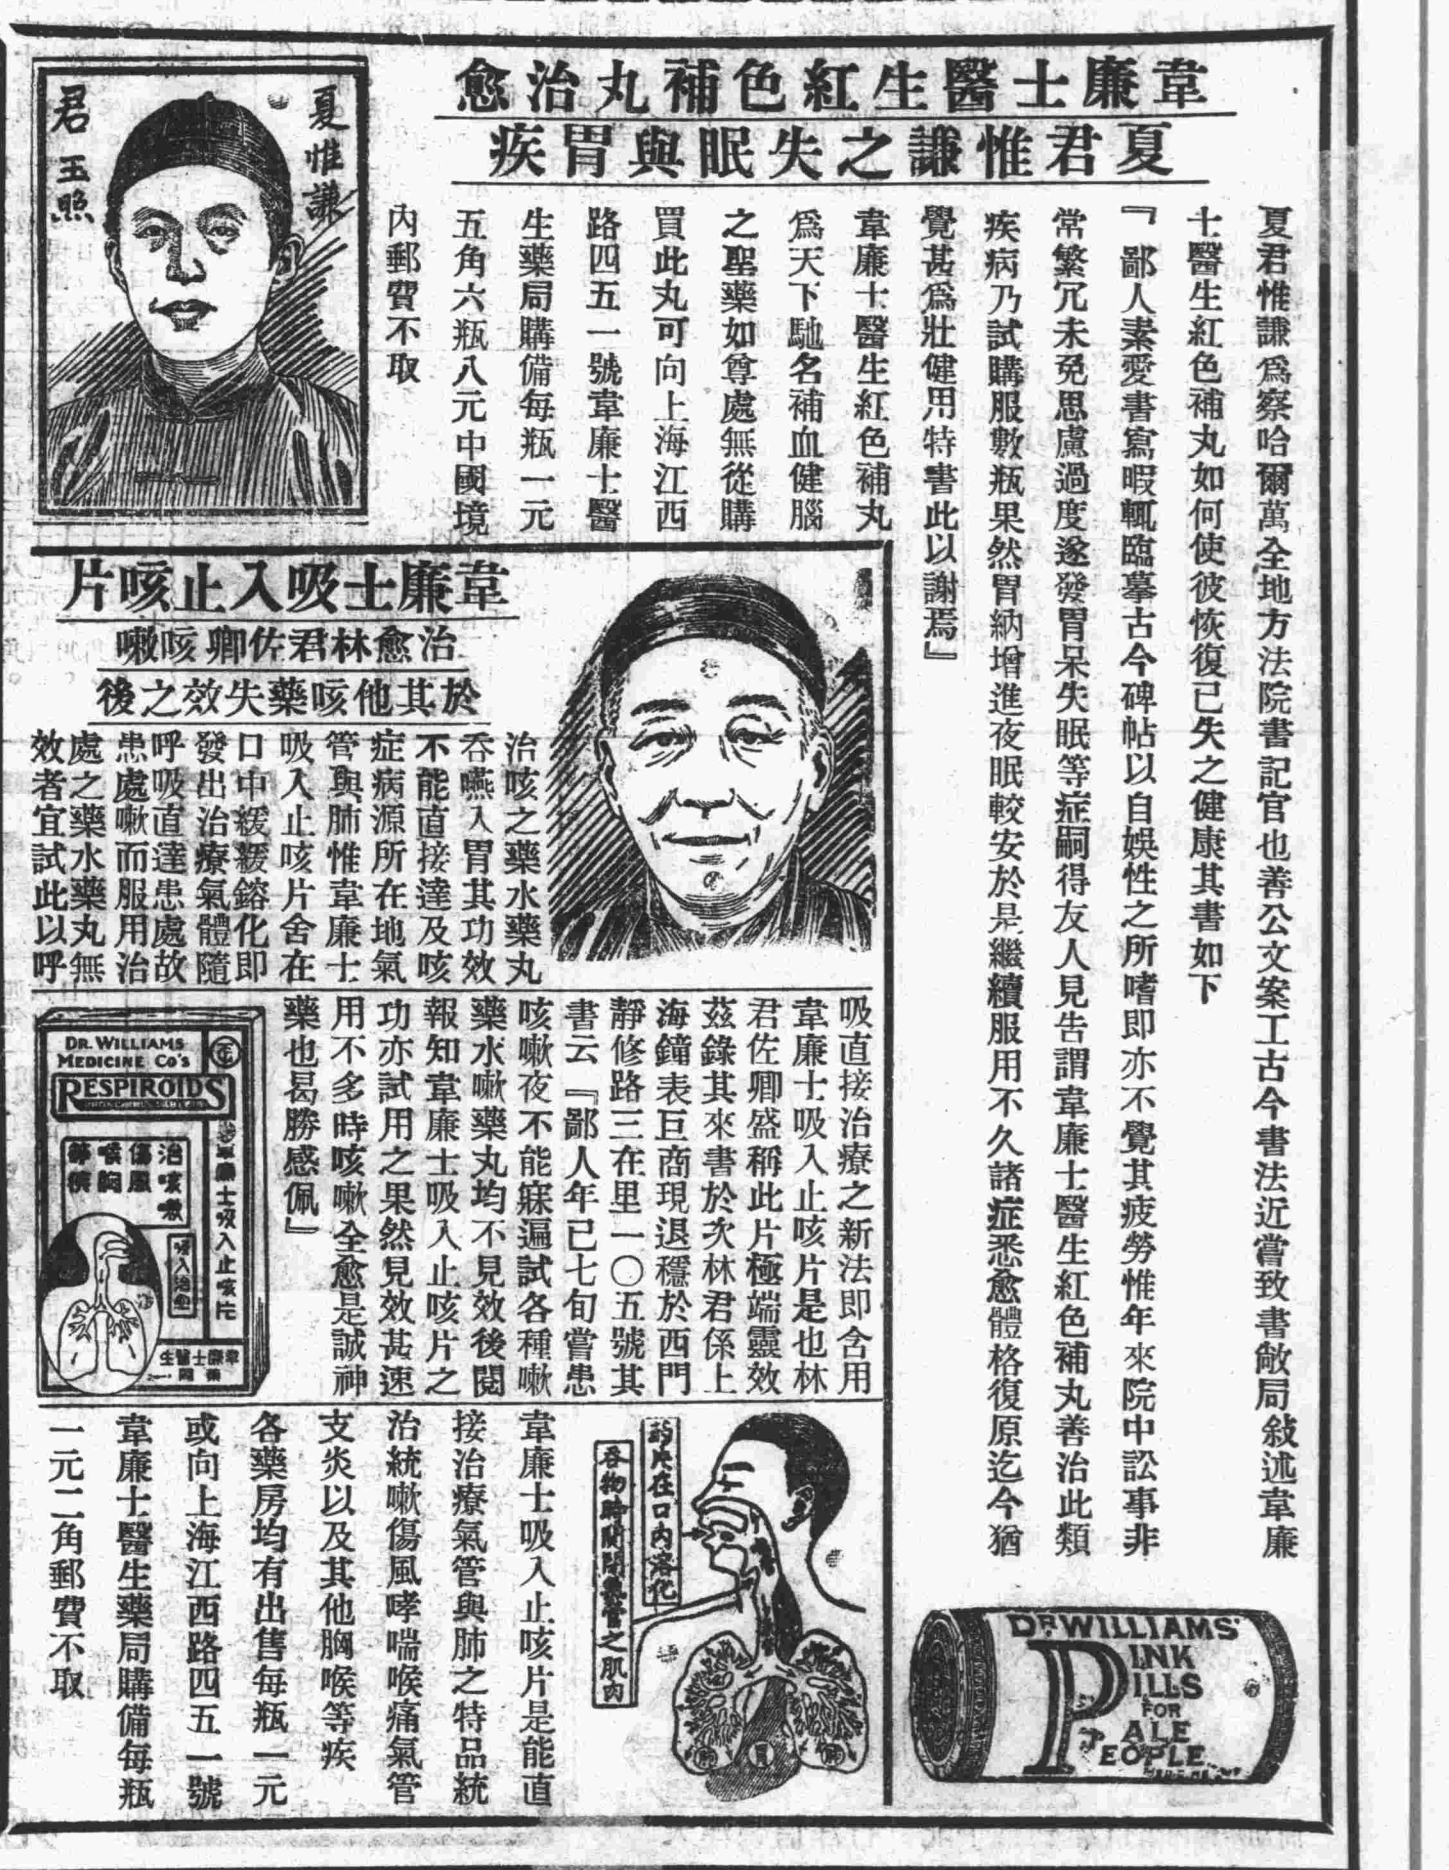 韋廉士醫生紅色補丸治愈
夏君惟謙之失眠與胃疾
夏惟謙
君玉照
夏君惟謙爲察哈爾萬全地方法院書記官也善公文案工古今書法近嘗致書敝局敍述韋廉
士醫生紅色補丸如何使彼恢復已失之健康其書如下
『鄙人素愛書寫暇輒臨摹古今碑帖以自娛性之所嗜即亦不覺其疲勞惟年來院中訟事非
常繁冗未免思慮過度遂發胃呆失眠等症嗣得友人見告謂韋廉士醫生紅色補丸善治此類
疾病乃試購服數瓶果然胃納增進夜眠較安於是繼續服用不久諸症悉愈體格復原迄今猶
覺甚爲壯健用特書此以謝焉』
韋廉士醫生紅色補丸
爲天下馳名補血健腦
之聖藥如尊處無從購
買此丸可向上海江西
路四五一號韋廉士醫
生藥局購備每瓶一元
五角六瓶八元中國境
內郵費不取
DR. WILLIAMS'
PINK
PILLS
FOR
PALE
PEOPLE
韋廉士吸入止咳片
治愈林君佐卿咳嗽
於其他咳藥失效之後
治咳之藥水藥丸
吞嚥入胃其功效
不能直接達及咳
症病源所在地氣
管與肺惟韋廉士
吸入止咳片舍在
口中緩緩鎔化即
發出治療氣體隨
呼吸直達患處故
患處嗽而服用治
處之藥水藥丸無
效者宜試此以呼
吸直接治療之新法即含用
韋廉士吸入止咳片是也林
君佐卿盛稱此片極端靈效
茲錄其來書於次林君係上
海鐘表巨商現退穩於西門
靜修路三在里一〇五號其
書云『鄙人年已七旬嘗患
咳嗽夜不能寐遍試各種嗽
藥水嗽藥丸均不見效後閱
報知韋廉士吸入止咳片之
功亦試用之果然見效甚速
用不多時咳嗽全愈是誠神
藥也曷勝感佩』
DR. WILLIAMS
MEDICINE CO'S
RESPIROIDS
韋廉士吸入止咳片
治咳嗽
傷風
喉胸
等疾
吸入治愈
韋廉士醫生
藥局
藥片在口內溶化
吞物時關閉氣管之肌肉
肺
胃
肺
韋廉士吸入止咳片是能直
接治療氣管與肺之特品統
治統嗽傷風哮喘喉痛氣管
支炎以及其他胸喉等疾
各藥房均有出售每瓶一元
或向上海江西路四五一號
韋廉士醫生藥局購備每瓶
一元二角郵費不取